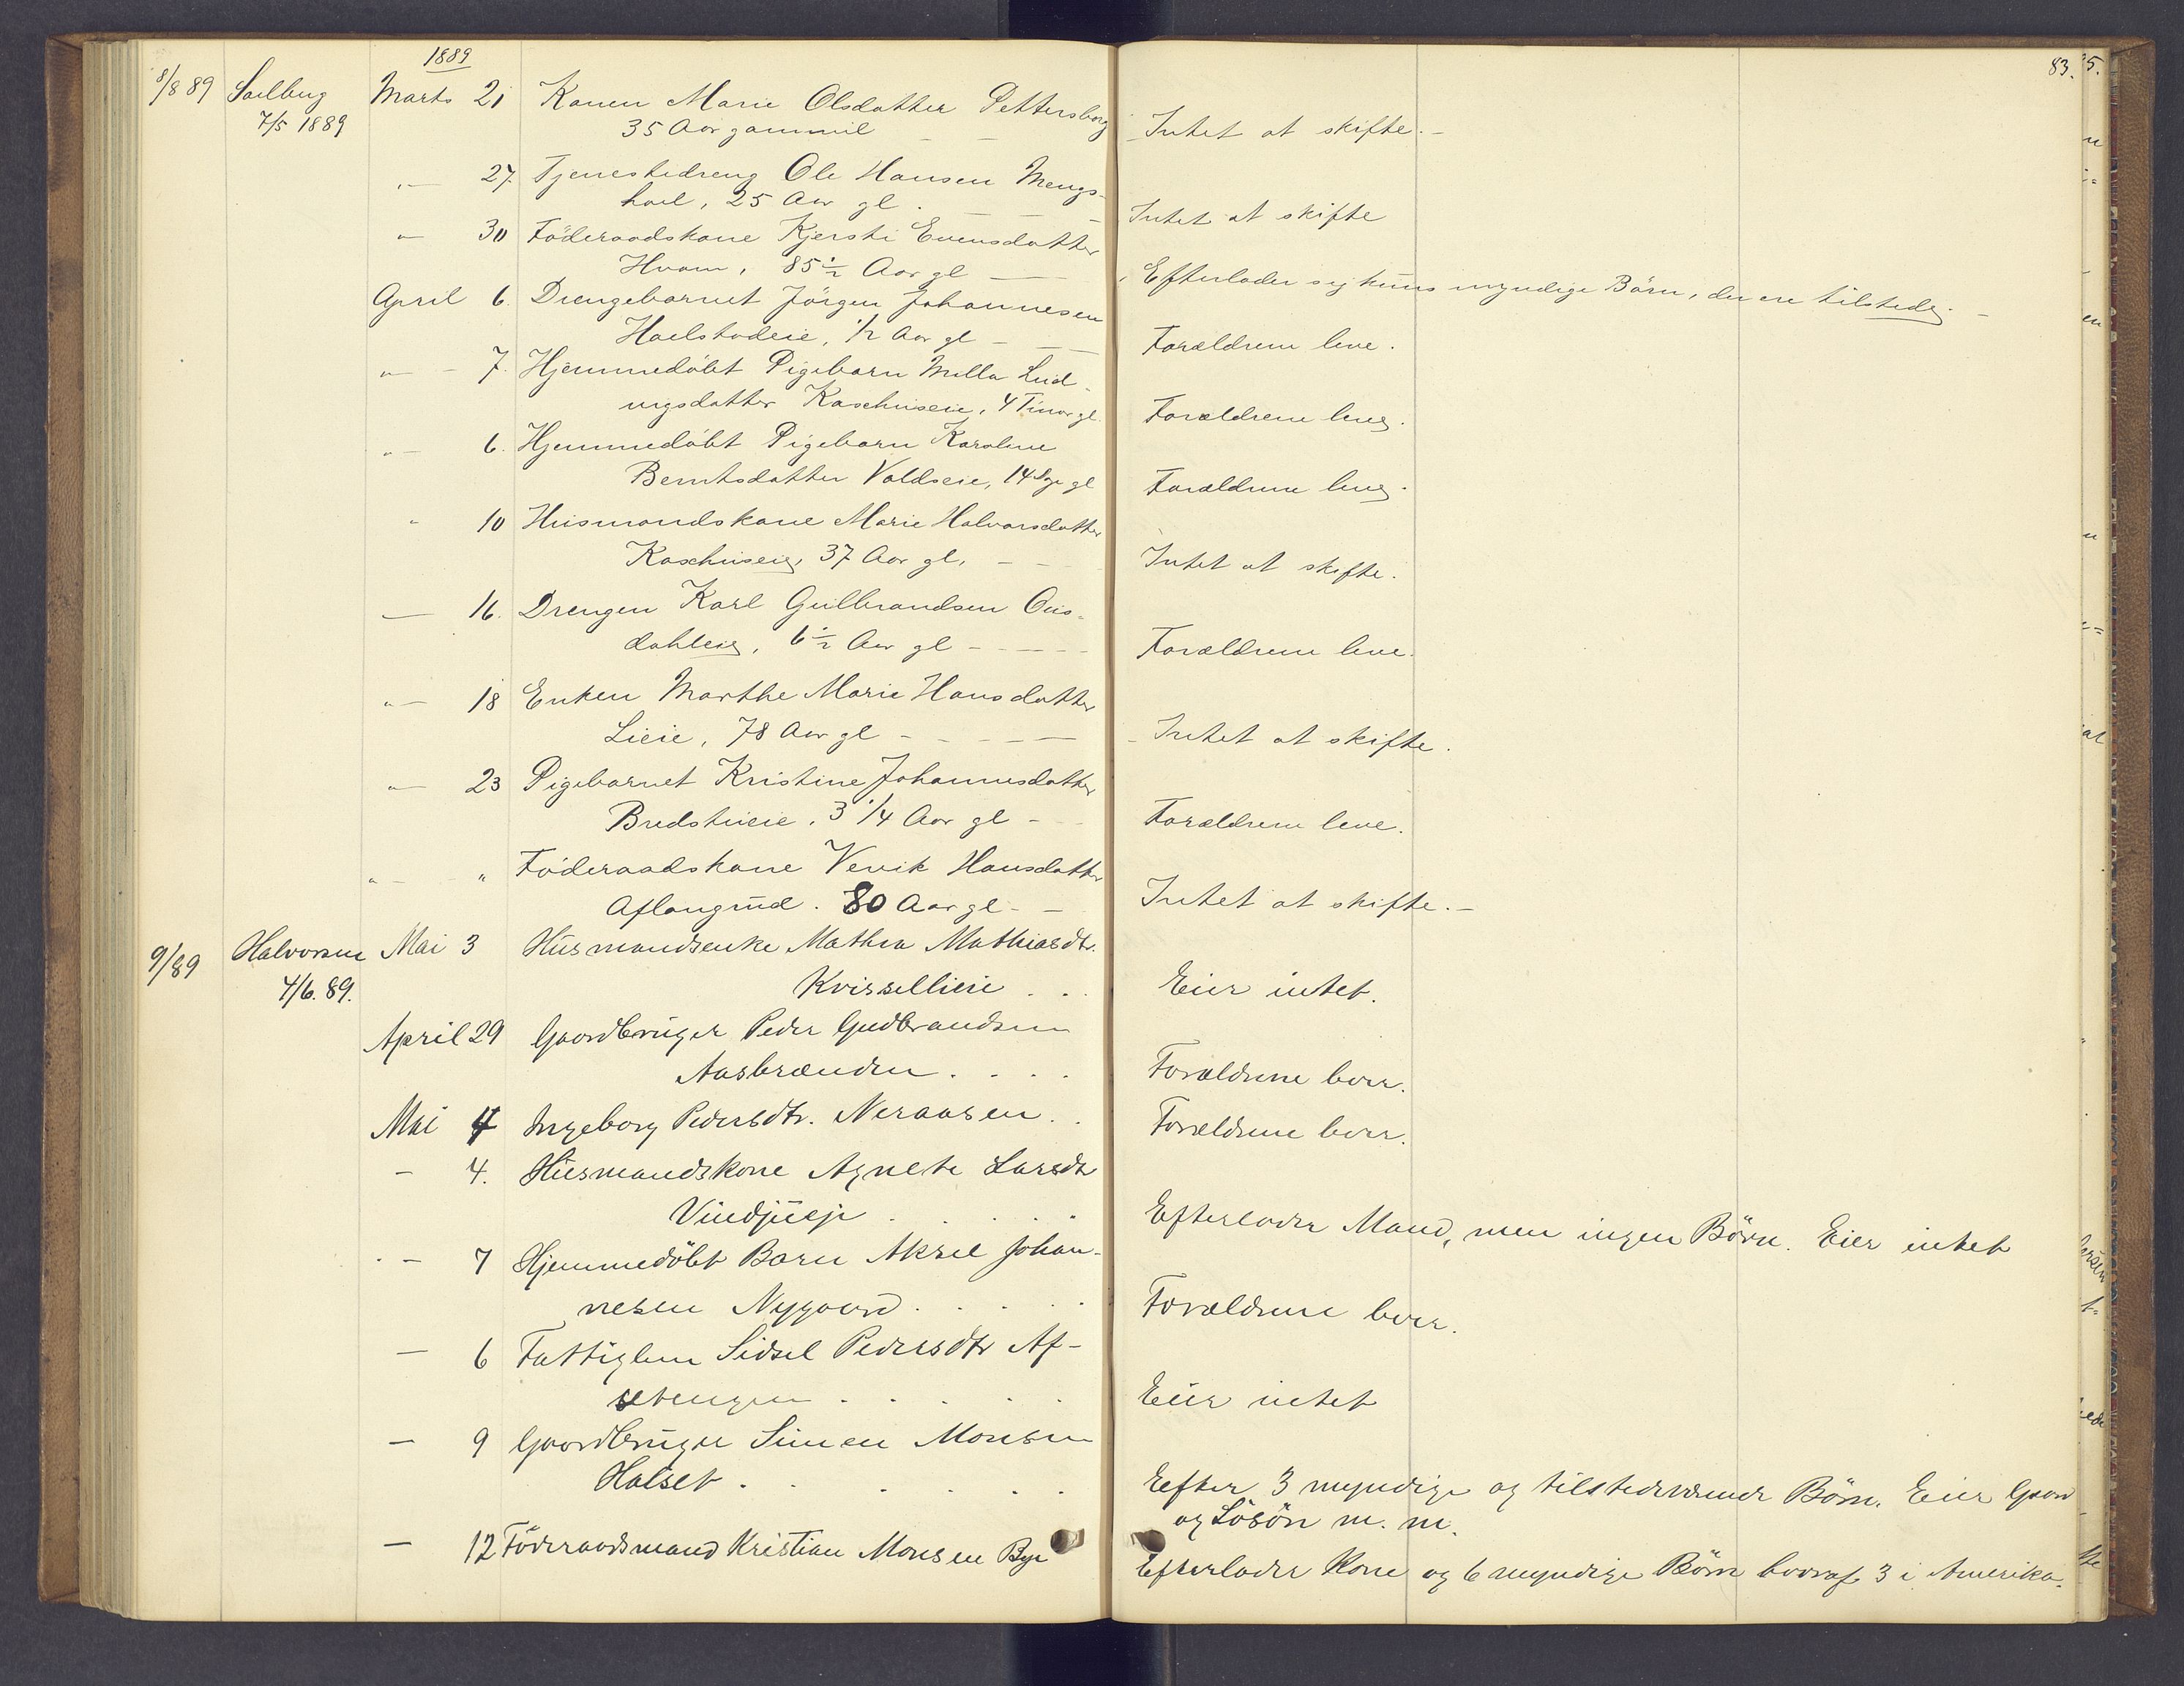 1889
83.
8/8 89 Saelberg Marts 21 Konen Marie Olsdatter Pettersborg
7/5 1889 35 Aar gammel — Intet at skifte. —
"— 27. Tjenestedreng Ole Hansen Mengs-
hoel, 25 Aar gl. — — — Intet at skifte
"— 30 Föderaadskone Kjersti Evensdatter
Hvam, 85½ Aar gl — Efterlader sig kuns myndige Börn, der ere tilstede. —
April 6. Drengebarnet Jörgen Johannesen
Hoelstadeie, ½ Aar gl — Forældrene leve.
"— 7. Hjemmedöbt Pigebarn Milla Lud-
vigsdatter Kaschuseie, 4 Timer gl. Forældrene leve.
"— 6. Hjemmedöbt Pigebarn Karoline
Berntsdatter Voldseie, 14 Dge gl Forældrene leve.
" 10 Husmandskone Marie Halvorsdatter
Kaschuseie, 37 Aar gl. — Intet at skifte.
— 16. Drengen Karl Gulbrandsen Ous-
dahleie, 6½ Aar gl — — — Forældrene leve.
"— 18 Enken Marthe Marie Hansdatter
Lieie, 78 Aar gl — — — — Intet at skifte.
"— 23 Pigebarnet Kristine Johannesdatter
Bredstueie, 3 1/4 Aar gl — Forældrene leve.
"— " Föderaadskone Venik Hansdatter
Aflangrud. 80 Aar gl — — Intet at skifte. —
9/89 Halvorsen Mai 3 Husmandsenke Mathea Mathiasdtr.
4/6. 89. Kvissellieie . . . Eier intet.
April 29 Gaardbruger Peder Gudbrandsen
Aasbrænden . . . . Forældrene lever.
Mai 4 Ingeborg Pedersdtr. Neraasen . . Forældrene lever.
— 4. Husmandskone Agnete Larsdtr
Vindjuej . . . . Efterlader Mand, men ingen Börn. Eier intet
"— 7 Hjemmedöbt Barn Aksel Johan-
nesen Nygaard . . . . . Forældrene lever.
— 6 Fattiglem Sidsel Pedersdtr Af-
setengen . . . . Eier intet
— 9 Gaardbruger Simen Monsen
Halset . . . . . Eefter 3 myndige og tilstedeværende Börn. Eier Gaard
og Lösön m. m.
— 12 Föderaadsmand Kristian Monsen Bye Efterlader Kone og 6 myndige Börn hvoraf 3 i Amerika.